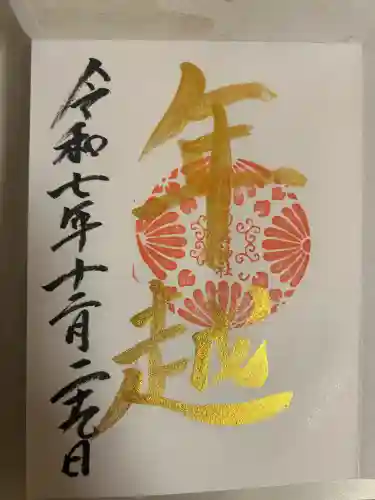 年越
令和七年十二月二十九日